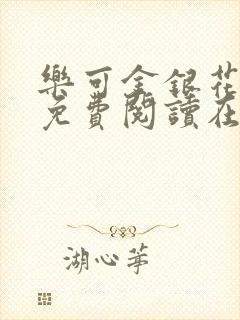 樂可金銀花
免費閱讀在
湖心茅